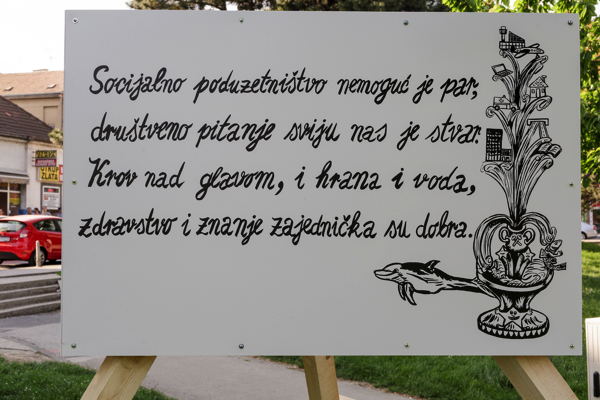 Socijalno poduzetništvo nemoguć je par,
društveno pitanje sviju nas je stvar.
Krov nad glavom, i hrana i voda,
zdravstvo i znanje zajednička su dobra.